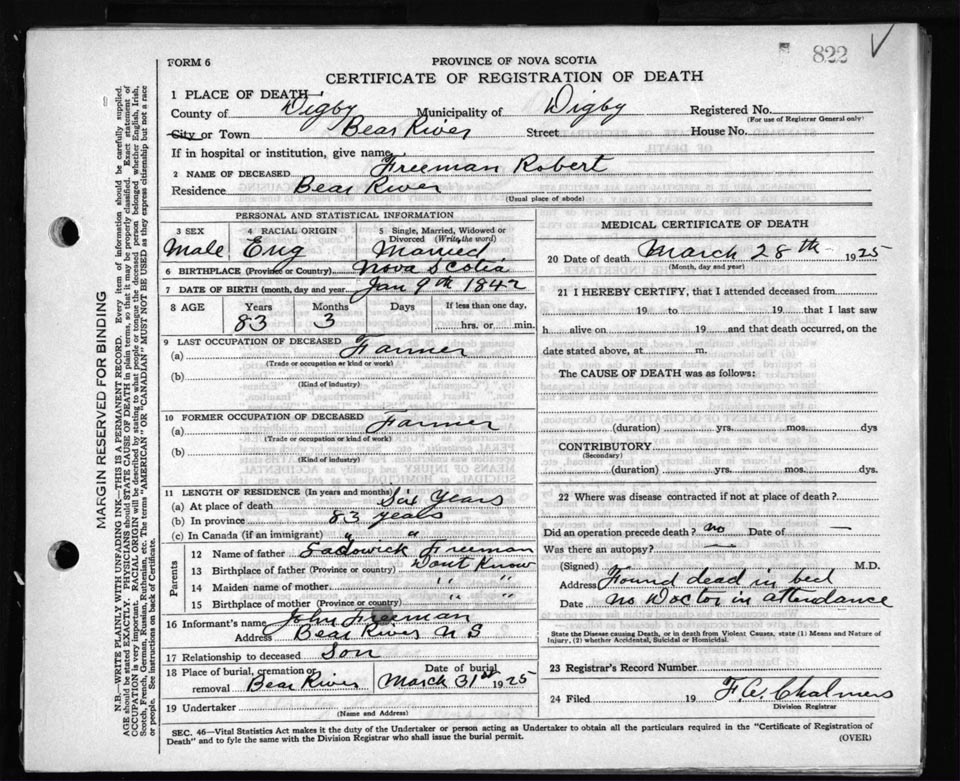 822 ✓
FORM 6
PROVINCE OF NOVA SCOTIA
CERTIFICATE OF REGISTRATION OF DEATH
1 PLACE OF DEATH—
County of Digby Municipality of Digby Registered No.
(For use of Registrar General only)
City or Town Bear River Street House No.
If in hospital or institution, give name
2 NAME OF DECEASED Freeman Robert
Residence Bear River
(Usual place of abode)
PERSONAL AND STATISTICAL INFORMATION
3 SEX 4 RACIAL ORIGIN 5 Single, Married, Widowed or Divorced (Write the word)
Male Eng Married
6 BIRTHPLACE (Province or Country) Nova Scotia
7 DATE OF BIRTH (month, day and year) Jan 9th 1842
8 AGE Years Months If less than one day,
83 3 hrs. or min.
9 LAST OCCUPATION OF DECEASED
(a) Farmer
(Trade or occupation or kind of work)
(b)
(Kind of industry)
10 FORMER OCCUPATION OF DECEASED
(a) Farmer
(Trade or occupation or kind of work)
(b)
(Kind of industry)
11 LENGTH OF RESIDENCE (In years and months)
(a) At place of death Six Years
(b) In province 83 years
(c) In Canada (if an immigrant) " "
Parents
12 Name of father Freeman
13 Birthplace of father (Province or country) Dont Know
14 Maiden name of mother " "
15 Birthplace of mother (Province or country) " "
16 Informant's name John Freeman
Address Bear River N S
17 Relationship to deceased Son
18 Place of burial, cremation or removal Bear River Date of burial March 31st 1925
19 Undertaker
(Name and Address)
MEDICAL CERTIFICATE OF DEATH
20 Date of death March 28th 1925
(Month, day and year)
21 I HEREBY CERTIFY, that I attended deceased from
19 to 19 that I last saw
h alive on 19 and that death occurred, on
date stated above, at m.
The CAUSE OF DEATH was as follows:
(duration) yrs. mos. dys
CONTRIBUTORY
(Secondary)
(duration) yrs. mos. dys.
22 Where was disease contracted if not at place of death?
Did an operation precede death? no Date of —
Was there an autopsy? —
(Signed) M.D.
Address Found dead in bed
Date no Doctor in attendance
State the Disease causing Death, or in death from Violent Causes, state (1) Means and Nature of
Injury, (2) whether Accidental, Suicidal or Homicidal.
23 Registrar's Record Number
24 Filed 19 F. A. Chalmers
Division Registrar
SEC. 46—Vital Statistics Act makes it the duty of the Undertaker or person acting as Undertaker to obtain all the particulars required in the "Certificate of Registration of
Death" and to fyle the same with the Division Registrar who shall issue the burial permit.
(OVER)
MARGIN RESERVED FOR BINDING
N.B.—WRITE PLAINLY WITH UNFADING INK—THIS IS A PERMANENT RECORD. Every item of information should be carefully supplied.
AGE should be stated EXACTLY. PHYSICIANS should STATE CAUSE OF DEATH in plain terms, so that it may be properly classified. Exact statement of
OCCUPATION is very important. RACIAL ORIGIN will be described by stating to what people or tongue the deceased person belonged whether English, Irish,
Scotch, French, German, Russian, Ruthenian, etc. The terms "AMERICAN" OR "CANADIAN" MUST NOT BE USED as they express citizenship but not a race
or people. See instructions on back of Certificate.